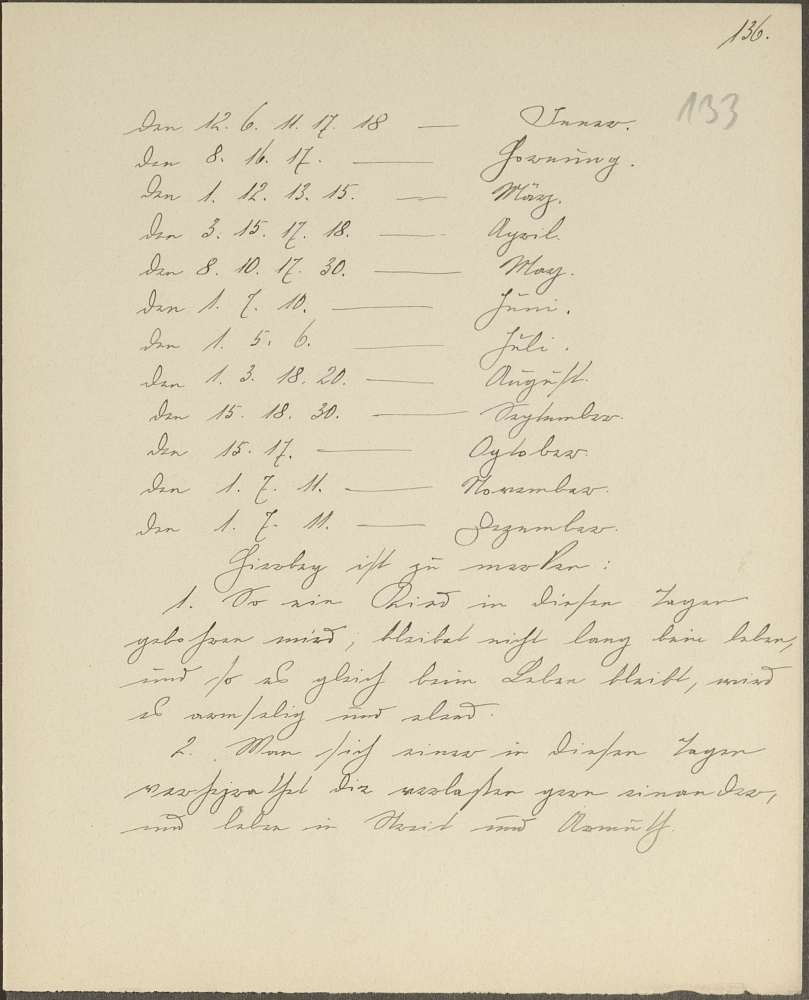 136.
133
Den 12. 6. 11. 17. 18 — Jenner.
Den 8. 16. 17. — Hornung.
Den 1. 12. 13. 15. — März.
Den 3. 15. 17. 18. — April.
Den 8. 10. 17. 30. — May.
Den 1. 7. 10. — Juni.
Den 1. 5. 6. — Juli.
Den 1. 3. 18. 20. — August.
Den 15. 18. 30. — September.
Den 15. 17. — Octobeer.
Den 1. 7. 11. — November.
Den 1. 7. 11. — Dezember.
Hierbey ist zu merken:
1. So ein Kind in diesen Tagen
gebohren wird, bleibet nicht lang beim leben,
und so es gleich beim Leben bleibt, wird
es armselig und elend.
2. Wan sich einer in diesen Tagen
verheÿrathet die verlaßen gern einander,
und leben in Streit und Armuth.